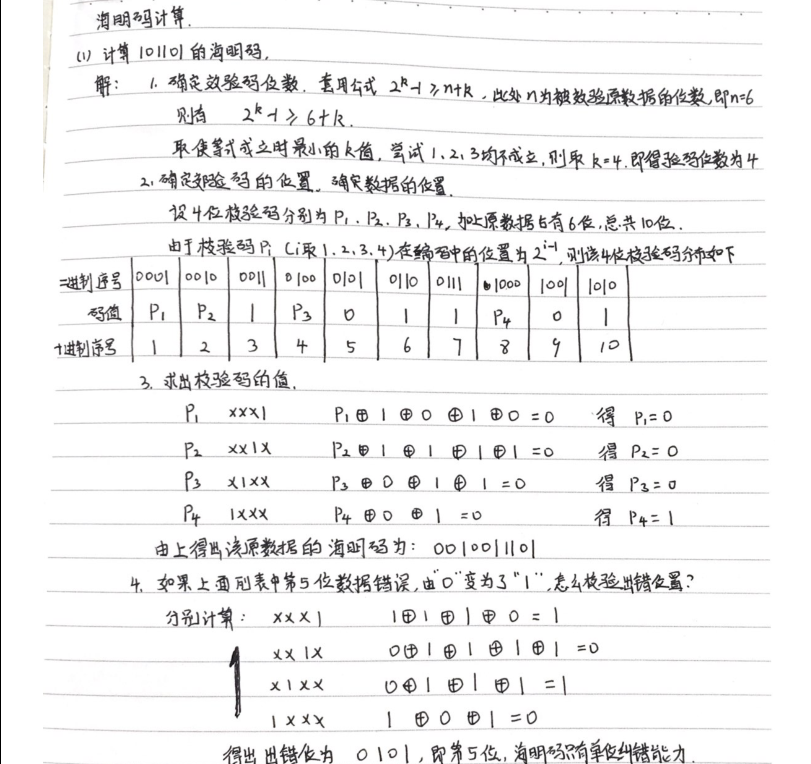 海明码计算.
(1) 计算 101101 的海明码.
解: 1. 确定效验码位数. 套用公式 2^k-1≥n+k, 此处n为被效验原数据的位数,即n=6
则有 2^k-1≥6+k.
取使等式成立时最小的k值, 尝试1、2、3均不成立, 则取 k=4. 即得验码位数为4
2. 确定验码的位置, 确定数据的位置.
设4位校验码分别为P₁、P₂、P₃、P₄, 加上原数据占有6位, 总共10位.
由于校验码Pᵢ (i取1、2、3、4) 在编码中的位置为2^(i-1), 则该4位校验码分布如下
二进制序号 0001 0010 0011 0100 0101 0110 0111 1000 1001 1010
码值 P₁ P₂ 1 P₃ 0 1 1 P₄ 0 1
十进制序号 1 2 3 4 5 6 7 8 9 10
3. 求出校验码的值.
P₁ xxx1 P₁⊕1⊕0⊕1⊕0=0 得 P₁=0
P₂ xx1x P₂⊕1⊕1⊕1⊕1=0 得 P₂=0
P₃ x1xx P₃⊕0⊕1⊕1=0 得 P₃=0
P₄ 1xxx P₄⊕0⊕1=0 得 P₄=1
由上得出该原数据的海明码为: 0010011101
4. 如果上面列表中第5位数据错误, 由"0"变为了"1", 怎么校验出错位置?
分别计算: xxx1 1⊕1⊕1⊕0=1
xx1x 0⊕1⊕1⊕1⊕1=0
x1xx 0⊕1⊕1⊕1=1
1xxx 1⊕0⊕1=0
得出出错位为 0101, 即第5位, 海明码只有单位纠错能力.